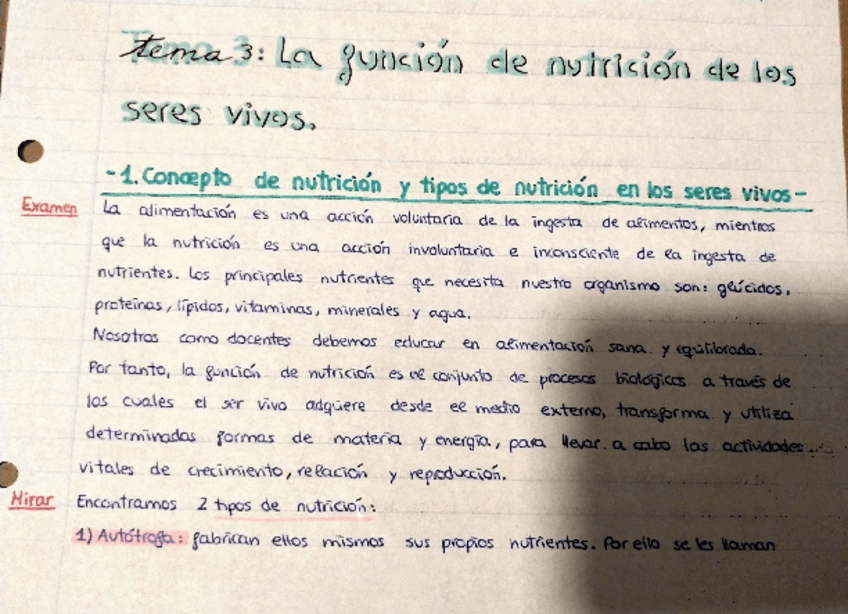 Tema 3: La función de nutrición de los
seres vivos.
-1. Concepto de nutrición y tipos de nutrición en los seres vivos-
Examen La alimentación es una acción voluntaria de la ingesta de alimentos, mientras
que la nutrición es una acción involuntaria e inconsciente de la ingesta de
nutrientes. Los principales nutrientes que necesita nuestro organismo son: glúcidos,
proteínas, lípidos, vitaminas, minerales y agua.
Nosotros como docentes debemos educar en alimentación sana y equilibrada.
Por tanto, la función de nutrición es el conjunto de procesos biológicos a través de
los cuales el ser vivo adquiere desde el medio externo, transforma y utiliza
determinadas formas de materia y energía, para llevar a cabo las actividades
vitales de crecimiento, relación y reproducción.
Mirar Encontramos 2 tipos de nutrición:
1) Autótrofa: fabrican ellos mismos sus propios nutrientes. Por ello se les llaman